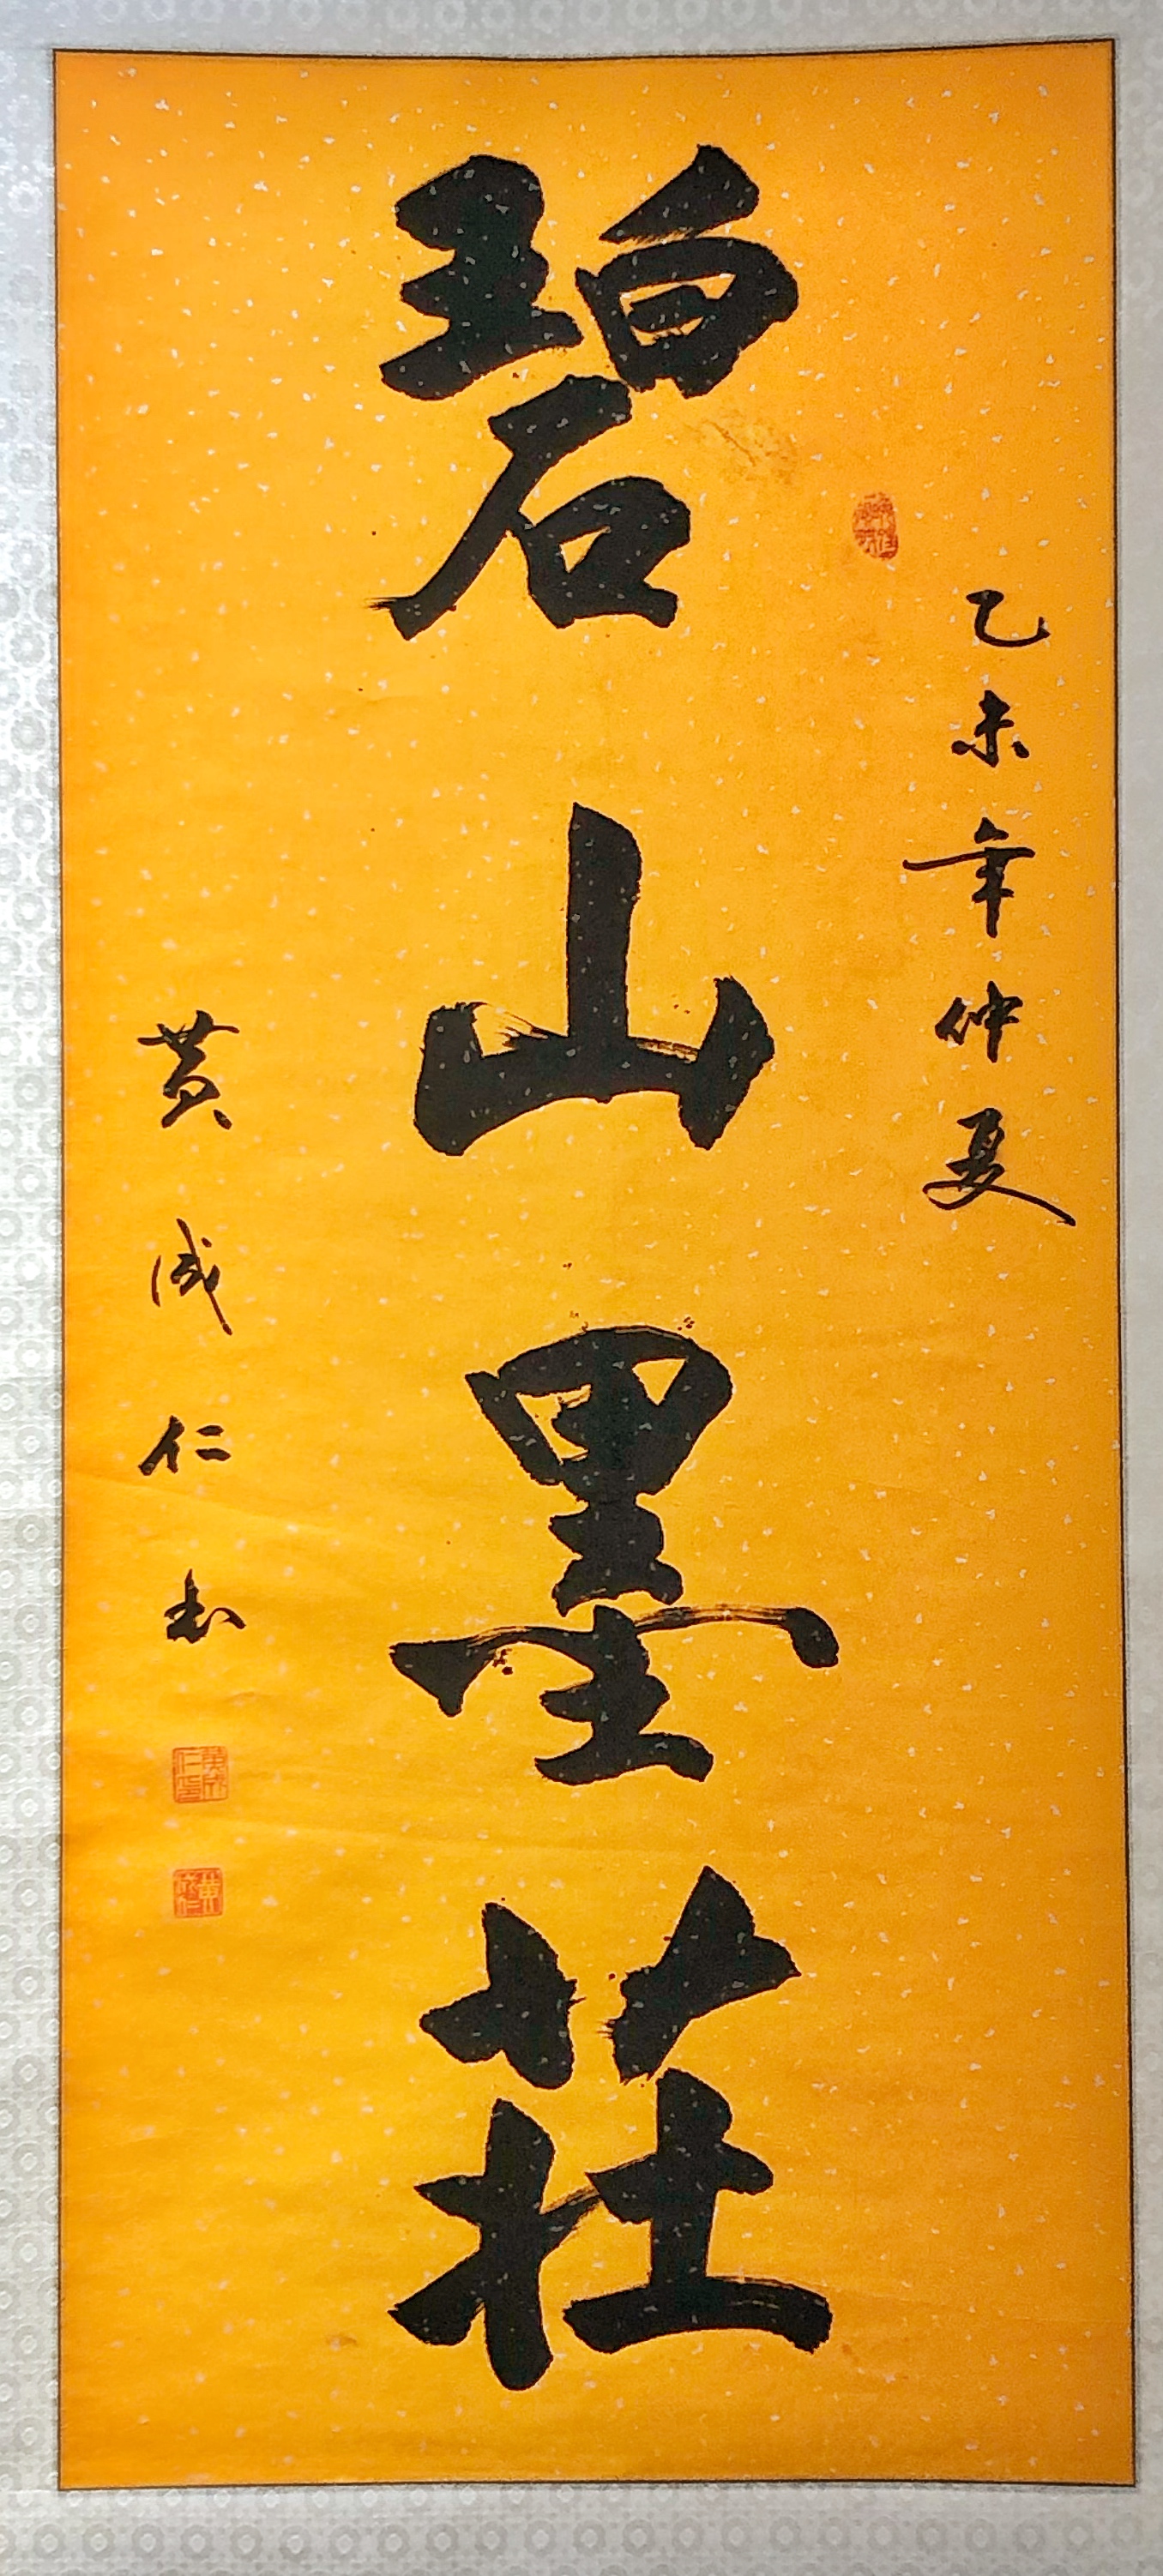 乙未年仲夏
碧山墨莊
黄成仁书
黄成仁印
黄成仁